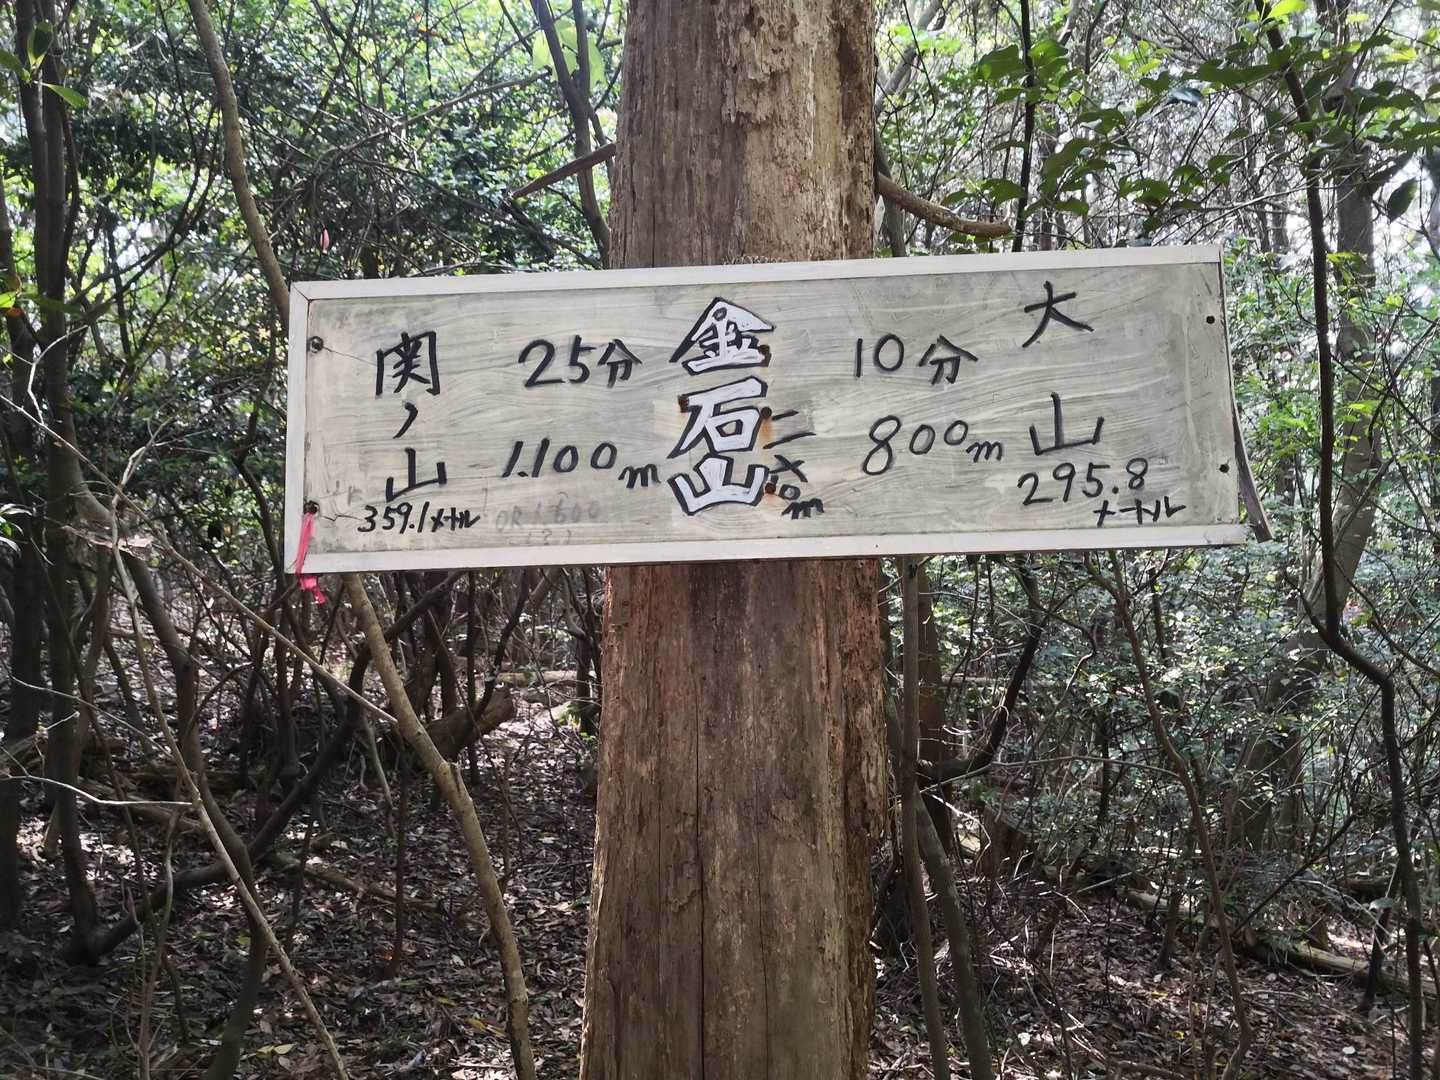 関ノ山
359.1メートル
25分
1.100m
OR 1.600
(?)
金石山
10分
800m
大山
295.8
メートル